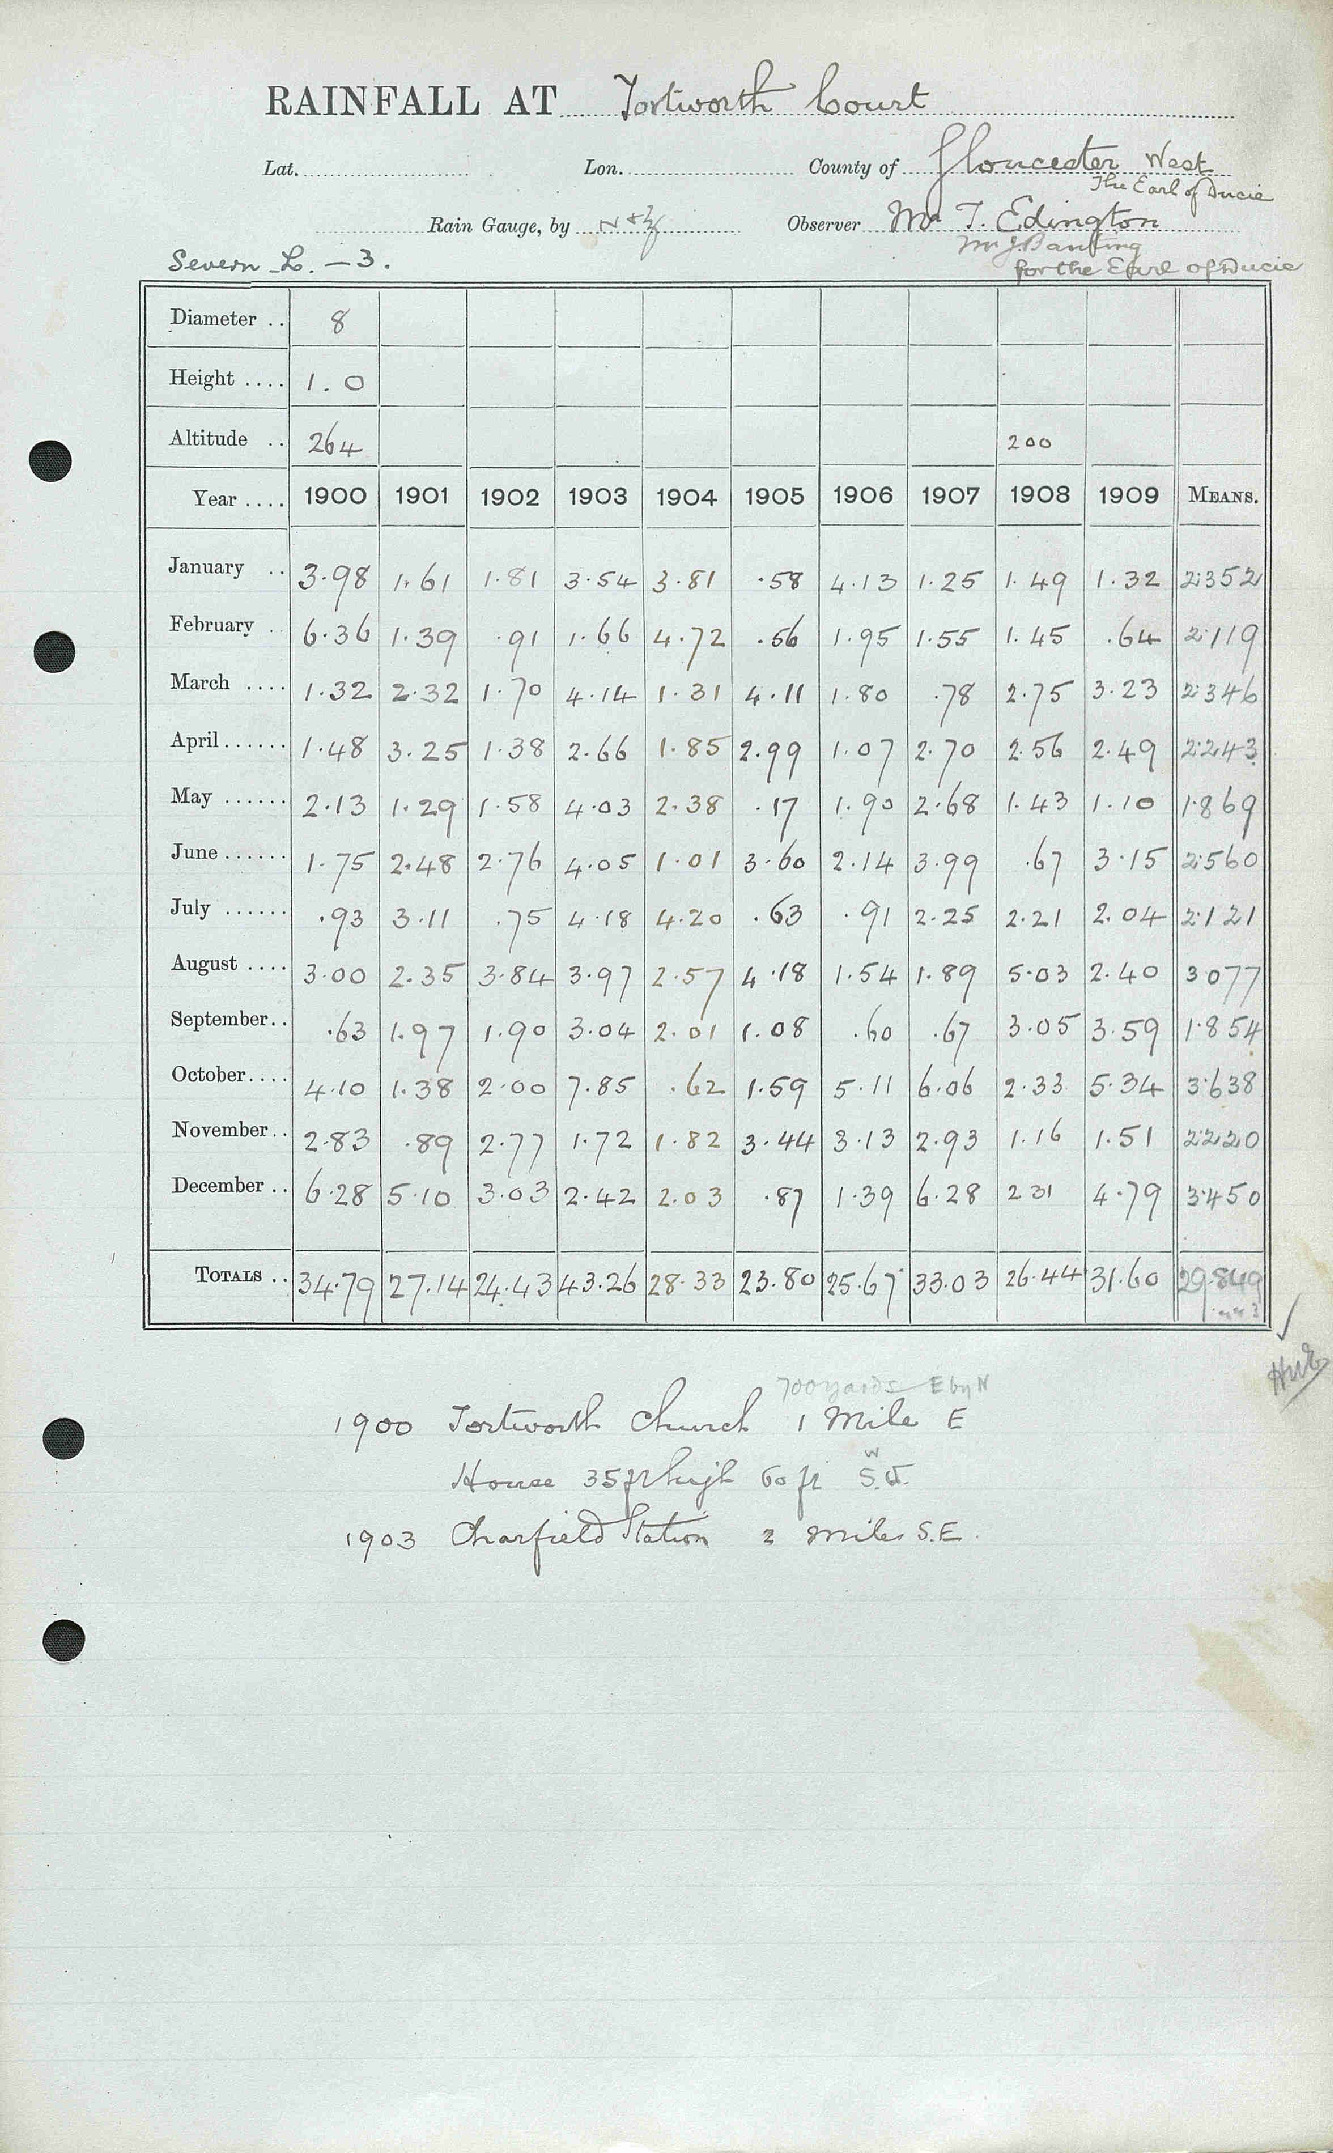 RAINFALL AT Tortworth Court
Lat. Lon. County of Gloucester West
The Earl of Ducie
Rain Gauge, by N & Z Observer Mr T. Edington
Mr J. Banting
Severn L. — 3. for the Earl of Ducie
Diameter .. 8
Height .... 1.0
Altitude .. 264 200
Year .... 1900 1901 1902 1903 1904 1905 1906 1907 1908 1909 MEANS.
January .. 3.98 1.61 1.81 3.54 3.81 .58 4.13 1.25 1.49 1.32 2.352
February .. 6.36 1.39 .91 1.66 4.72 .56 1.95 1.55 1.45 .64 2.119
March .... 1.32 2.32 1.70 4.14 1.31 4.11 1.80 .78 2.75 3.23 2.346
April ...... 1.48 3.25 1.38 2.66 1.85 2.99 1.07 2.70 2.56 2.49 2.243
May ...... 2.13 1.29 1.58 4.03 2.38 .17 1.90 2.68 1.43 1.10 1.869
June ...... 1.75 2.48 2.76 4.05 1.01 3.60 2.14 3.99 .67 3.15 2.560
July ...... .93 3.11 .75 4.18 4.20 .63 .91 2.25 2.21 2.04 2.121
August .... 3.00 2.35 3.84 3.97 2.57 4.18 1.54 1.89 5.03 2.40 3.077
September .. .63 1.97 1.90 3.04 2.01 1.08 .60 .67 3.05 3.59 1.854
October .... 4.10 1.38 2.00 7.85 .62 1.59 5.11 6.06 2.33 5.34 3.638
November .. 2.83 .89 2.77 1.72 1.82 3.44 3.13 2.93 1.16 1.51 2.220
December .. 6.28 5.10 3.03 2.42 2.03 .87 1.39 6.28 2 31 4.79 3.450
TOTALS .. 34.79 27.14 24.43 43.26 28.33 23.80 25.67 33.03 26.44 31.60 29.849
700 yards E by N
1900 Tortworth Church 1 Mile E
House 35 ft high 60 ft S.W.
1903 Charfield Station 2 miles S.E.